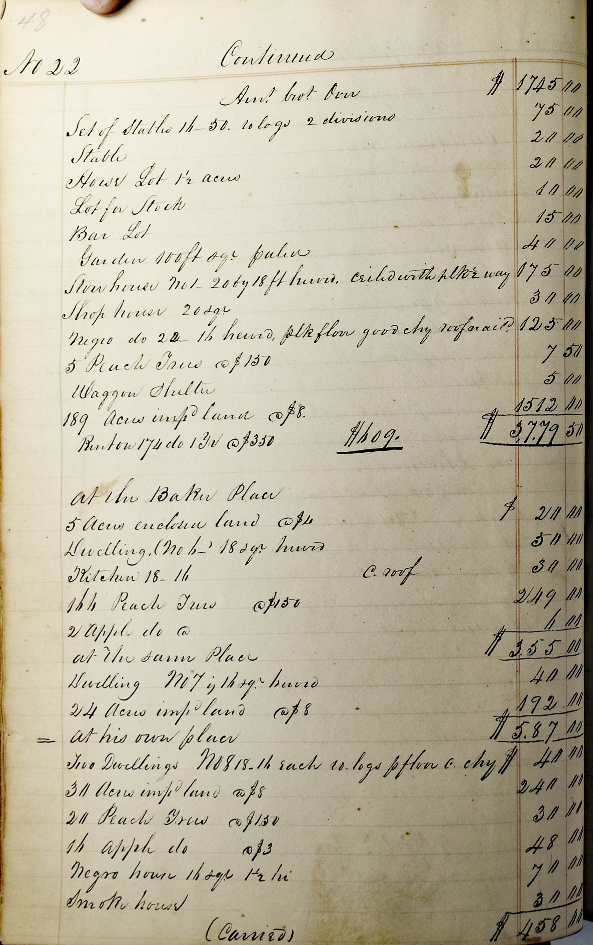 48
No 22 Continued
Amt brot Over $ 1745 00
Set of Stables 16-50. ro logs 2 divisions 75 00
Stable 20 00
House Lot 1½ acres 20 00
Lot for Stock 10 00
Bar Lot 15 00
Garden 100ft sqr paled 40 00
Storehouse No 1- 20 by 18 ft hewed, ceiled with plk 2 way 175 00
Shop house 20 sqr 30 00
Negro do 22 16 hewed, plk floor good chy roof 125 00
5 Peach Trees @ $1 50 7 50
Waggon Shelter 5 00
189 Acres impd land @ $8. 1512 00
Rent on 174 do @ $3 50 $609. $ 37.79 50
at the Baker Place
5 Acres enclosed land @ $4 $ 20 00
Dwelling, (No 6- 18 sqr hewed 50 00
Kitchen 18-16 C. roof 30 00
166 Peach Trees @ $1 50 249 00
2 Apple do @ 6 00
at the same Place $ 3.55 00
Dwelling No 7 16 sqr hewed 40 00
24 Acres impd land @ $8 192 00
= at his own place $ 5.87 00
Two Dwellings No 8 18-16 each ro. logs p floor c. chy $ 40 00
30 Acres impd land @ $8 240 00
20 Peach Trees @ $1 50 30 00
16 apple do @ $3 48 00
Negro house 16 sqr 1½ hi 70 00
Smoke house 30 00
(Carried) $ 458 00